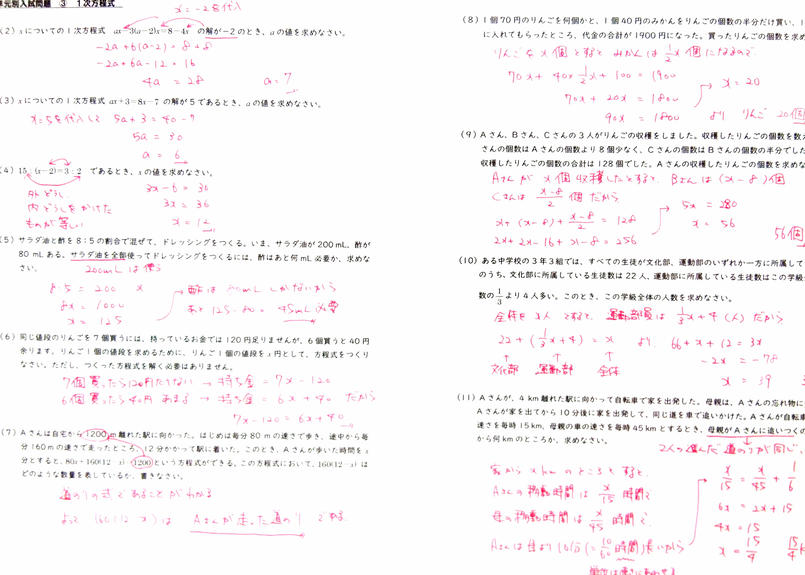 単元別入試問題 ③ 1次方程式
x=-2を代入
(2) xについての1次方程式 ax-3(a-2)x=8-4x の解が-2のとき、aの値を求めなさい。
-2a+6(a-2)=8+8
-2a+6a-12=16
4a=28 a=7
(3) xについての1次方程式 ax+3=8x-7 の解が5であるとき、aの値を求めなさい。
x=5を代入して 5a+3=40-7
5a=30
a=6
(4) 15:(x-2)=3:2 であるとき、xの値を求めなさい。
外どうし
内どうしをかけた
ものが等しい
3x-6=30
3x=36
x=12
(5) サラダ油と酢を8:5の割合で混ぜて、ドレッシングをつくる。いま、サラダ油が200mL、酢が
80mLある。サラダ油を全部使ってドレッシングをつくるには、酢はあと何mL必要か、求めな
さい。
200mLは使う
8:5=200:x
8x=1000
x=125
酢は80mLしかないから
あと125-80=45mL必要
(6) 同じ値段のりんごを7個買うには、持っているお金では120円足りませんが、6個買うと40円
余ります。りんご1個の値段を求めるために、りんご1個の値段をx円として、方程式をつくり
なさい。ただし、つくった方程式を解く必要はありません。
7個買ったら120円たりない→持ち金=7x-120
6個買ったら40円あまる→持ち金=6x+40 だから
7x-120=6x+40
(7) Aさんは自宅から1200m離れた駅に向かった。はじめは毎分80mの速さで歩き、途中から毎
分160mの速さで走ったところ、12分かかって駅に着いた。このとき、Aさんが歩いた時間をx
分とすると、80x+160(12-x)=1200という方程式ができる。この方程式において、160(12-x)は
どのような数量を表しているか、書きなさい。
道のりの式であることがわかる
よって 160(12-x)は Aさんが走った道のり である
(8) 1個70円のりんごを何個かと、1個40円のみかんをりんごの個数の半分だけ買い、1
に入れてもらったところ、代金の合計が1900円になった。買ったりんごの個数を求め
りんごをx個とすると みかんは1/2x個になるので
70x+40×1/2x+100=1900
70x+20x=1800
90x=1800
x=20
より りんご 20個
(9) Aさん、Bさん、Cさんの3人がりんごの収穫をしました。収穫したりんごの個数を数え
さんの個数はAさんの個数より8個少なく、Cさんの個数はBさんの個数の半分でした
収穫したりんごの個数の合計は128個でした。Aさんの収穫したりんごの個数を求めな
Aさんがx個収穫したとすると、Bさんは(x-8)個
Cさんは (x-8)/2 個だから
x+(x-8)+(x-8)/2=128
2x+2x-16+x-8=256
5x=280
x=56
56個
(10) ある中学校の3年3組では、すべての生徒が文化部、運動部のいずれか一方に所属して
のうち、文化部に所属している生徒数は22人、運動部に所属している生徒数はこの学級
数の1/3より4人多い。このとき、この学級全体の人数を求めなさい。
全体をx人とすると、運動部員は1/3x+4(人)だから
22+(1/3x+4)=x より 66+x+12=3x
文化部 運動部 全体
-2x=-78
x=39
(11) Aさんが、4km離れた駅に向かって自転車で家を出発した。母親は、Aさんの忘れ物に
Aさんが家を出てから10分後に家を出発して、同じ道を車で追いかけた。Aさんが自転車
速さを毎時15km、母親の車の速さを毎時45kmとするとき、母親がAさんに追いつくの
から何kmのところか、求めなさい。
2人の進んだ道のりが同じ。
家からxkmのところとすると、
Aさんの移動時間は x/15 時間で
母の移動時間は x/45 時間で、
Aさんは母より10分(=10/60時間)長いから
x/15=x/45+1/6
6x=2x+15
4x=15
x=15/4